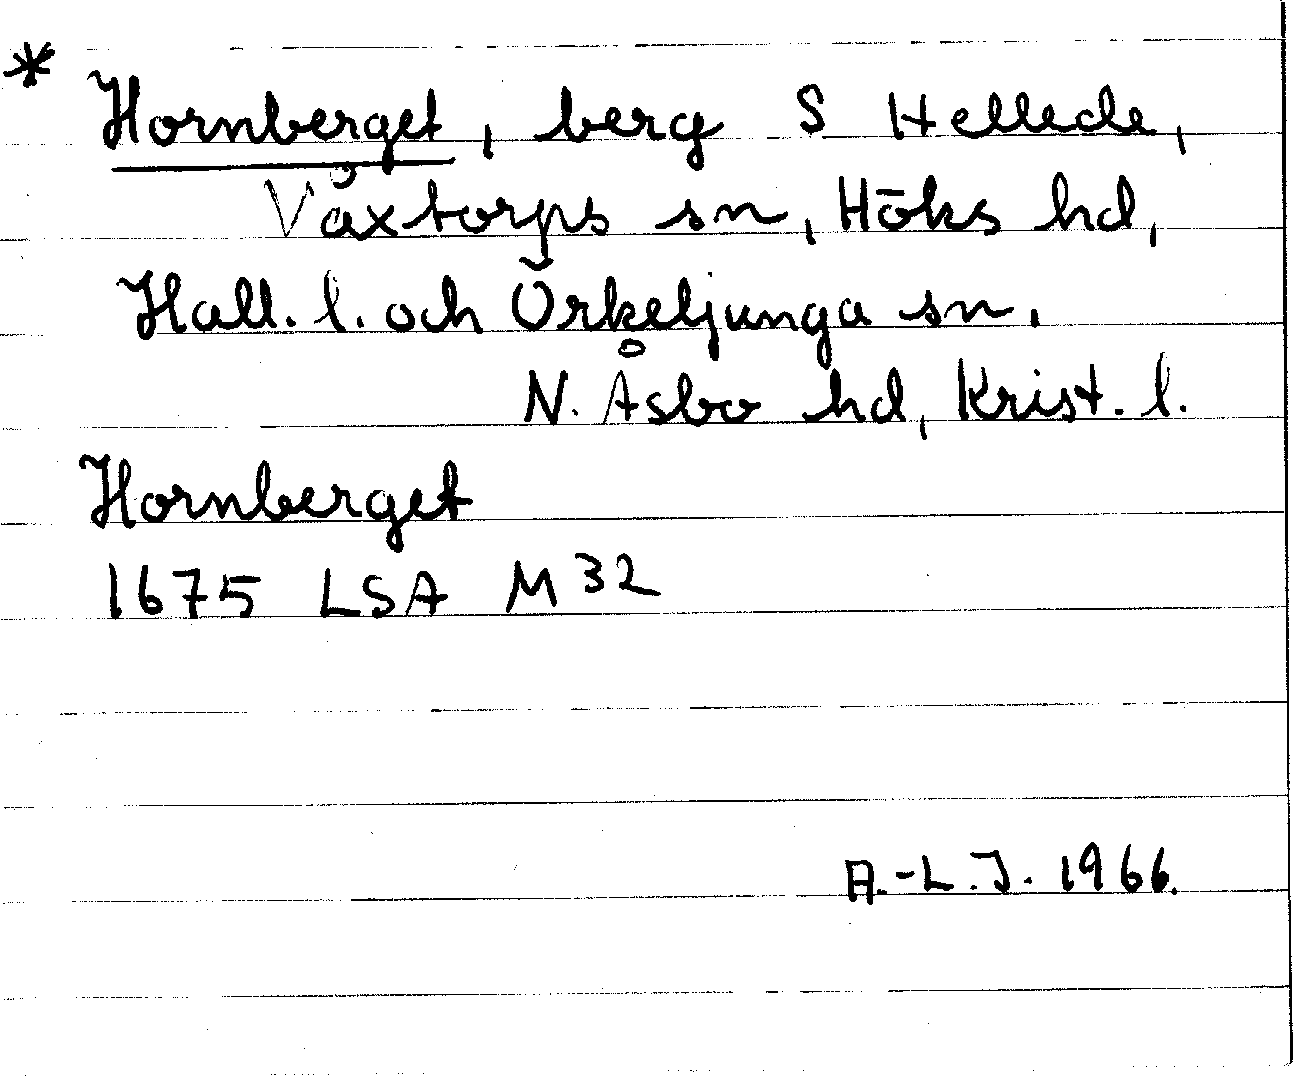 * Hornberget, berg S Hellede,
Växtorps sn, Höks hd,
Hall. l. och Örkeljunga sn.
N. Åsbo hd, Krist. l.
Hornberget
1675 LSA M 32
A.-L.J. 1966.